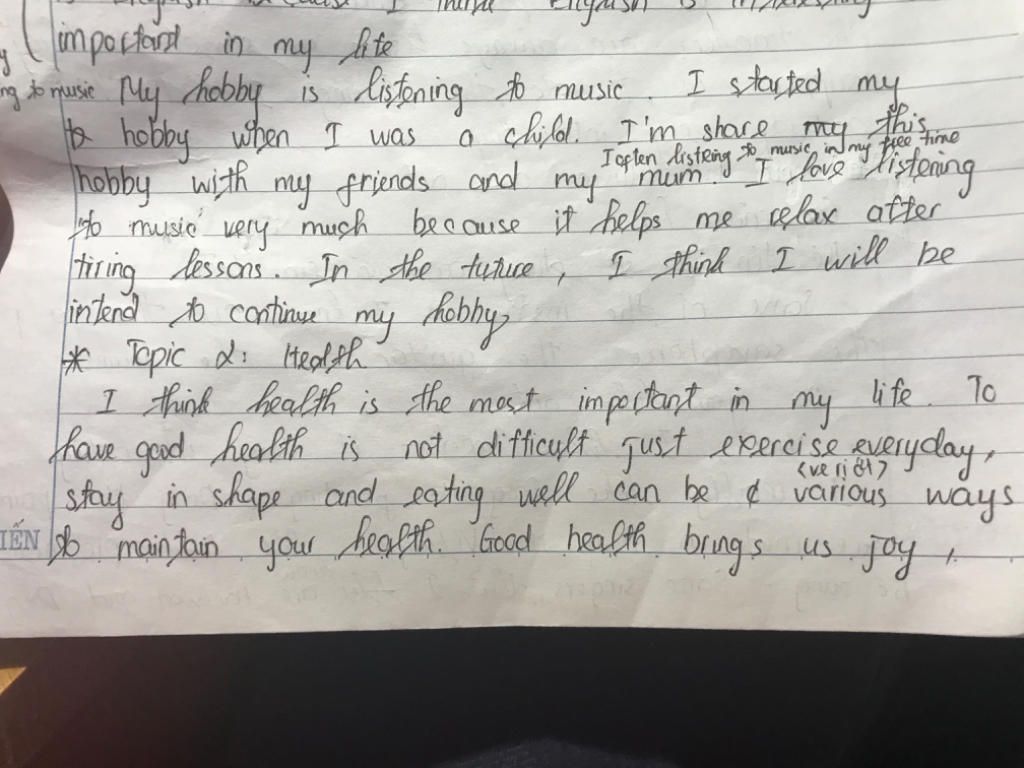 English because I think English is interesting
important in my life
ng to music My hobby is listening to music. I started my
hobby when I was a child. I'm share my this
I often listeing to music in my free time
hobby with my friends and my mum. I love listening
to music very much because it helps me relax after
tiring lessons. In the tuture, I think I will be
intend to continue my hobby
* Topic 2: Health
I think health is the most important in my life. To
have good health is not difficult just exercise everyday,
stay in shape and eating well can be various ways
to maintain your health. Good health brings us joy,
IẾN